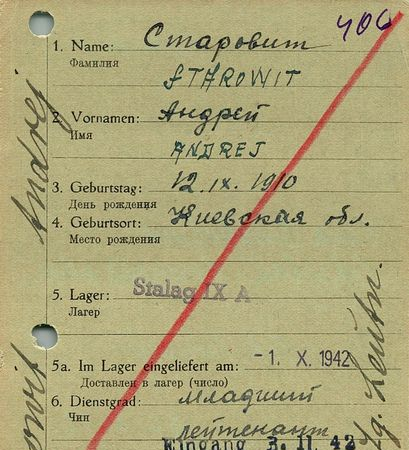 406
1. Name: Старовит
Фамилия
STAROWIT
2. Vornamen: Андрей
Имя
ANDREJ
3. Geburtstag: 12.IX.1910
День рождения
4. Geburtsort: Киевская обл.
Место рождения
5. Lager: Stalag IX A
Лагер
5a. Im Lager eingeliefert am: -1. X. 1942
Доставлен в лагер (число)
6. Dienstgrad: младший
Чин лейтенант
Eingang 3. 11. 42
Andrej
Leutn.